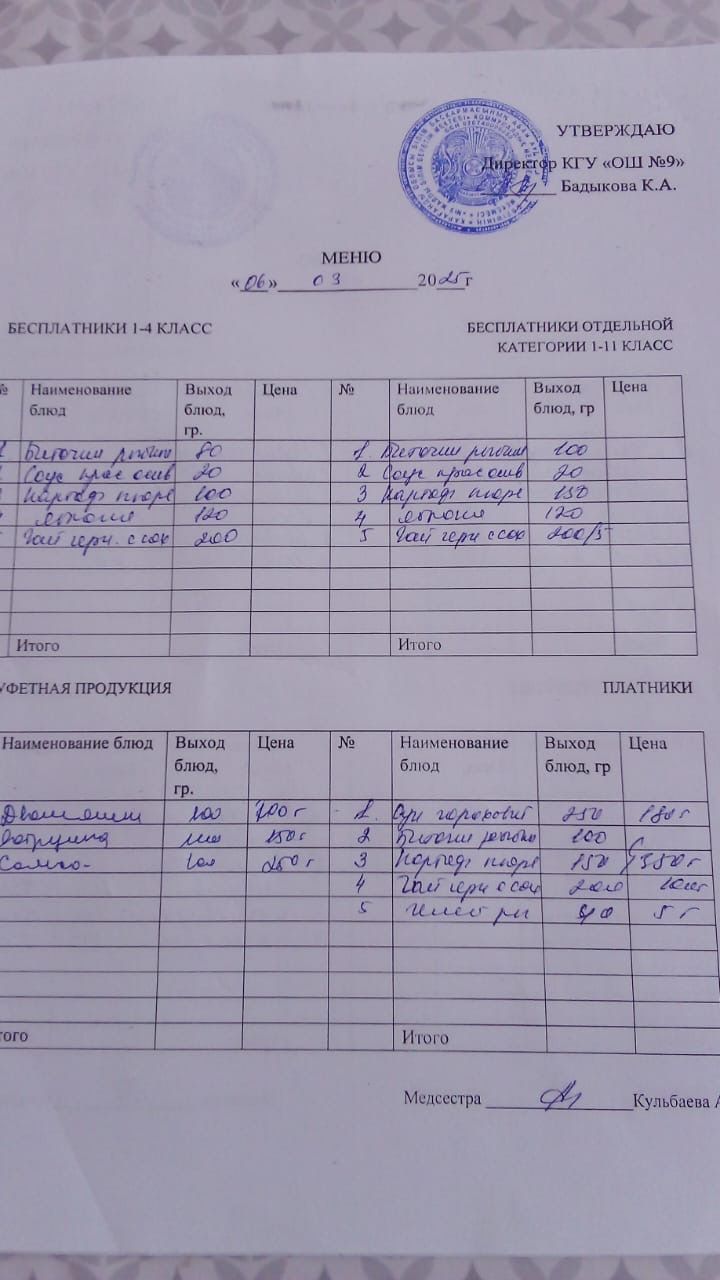 УТВЕРЖДАЮ
Директор КГУ «ОШ №9»
Бадыкова К.А.
МЕНЮ
«06» 03 2025г
БЕСПЛАТНИКИ 1-4 КЛАСС
БЕСПЛАТНИКИ ОТДЕЛЬНОЙ КАТЕГОРИИ 1-11 КЛАСС
№ Наименование блюд Выход блюд, гр. Цена № Наименование блюд Выход блюд, гр Цена
Биточки 80 1. Биточки 100
Соус крас осн 20 2 Соус крас осн 20
Картоф пюре 100 3 Картоф пюре 150
яблоки 120 4 яблоки 120
Чай черн. с сах 200 5 Чай черн с сах 200/5
Итого Итого
УФЕТНАЯ ПРОДУКЦИЯ ПЛАТНИКИ
Наименование блюд Выход блюд, гр. Цена № Наименование блюд Выход блюд, гр Цена
100 1. Суп гороховый 250 180г
Ватрушка 100 150г 2 Биточки 100
Самса 100 250г 3 Картоф пюре 150 350г
4 Чай черн с сах 200
5 5г
того Итого
Медсестра Кульбаева А